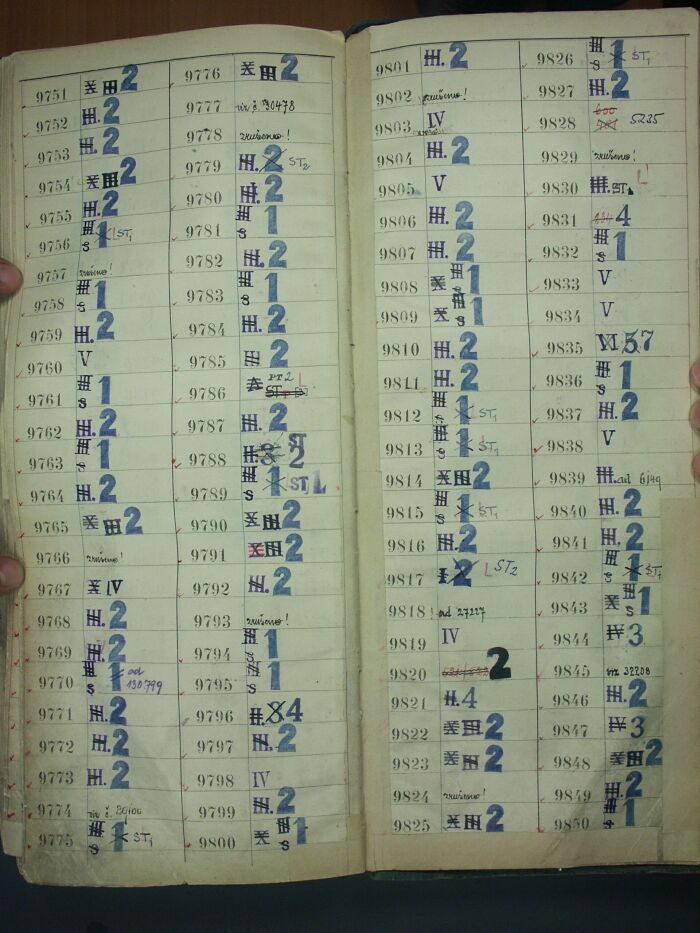 9751 X III 2
9752 III. 2
9753 III. 2
9754 X III 2
9755 III. 2
9756 III s 1 X L ST1
9757 zrušeno!
9758 III s 1
9759 III. 2
9760 V
9761 III s 1
9762 III. 2
9763 III s 1
9764 III. 2
9765 X III 2
9766 zrušeno!
9767 X IV
9768 III. 2
9769 III. 2
9770 III s 1 ad 130.799
9771 III. 2
9772 III. 2
9773 III. 2
9774 viz č.
9775 III s 1 X ST1
9776 X III 2
9777 viz č. 30478
9778 zrušeno!
9779 III. 2 ST2
9780 III. 2
9781 III s 1
9782 III. 2
9783 III s 1
9784 III. 2
9785 III 2
9786 A PT 2 L
9787 III. 2
9788 II. 3 ST 2
9789 III s 1 X ST L
9790 X III 2
9791 X III 2
9792 III. 2
9793 zrušeno!
9794 III s 1
9795 III s 1
9796 II. 3 4
9797 III. 2
9798 IV
9799 III. 2
9800 X III s 1
9801 III. 2
9802 zrušeno!
9803 IV
9804 III. 2
9805 V
9806 III. 2
9807 III. 2
9808 X III s 1
9809 X III s 1
9810 III. 2
9811 III. 2
9812 III s 1 X ST1
9813 III s 1 X ST1
9814 X III 2
9815 III s 1 X ST1
9816 III. 2
9817 I. 2 L ST2
9818 ad 27227
9819 IV
9820 2
9821 II. 4
9822 X III 2
9823 X III 2
9824 zrušeno!
9825 X III 2
9826 III s 1 X ST1
9827 III. 2
9828 600 5235
9829 zrušeno!
9830 III. ST. L
9831 4
9832 III s 1
9833 V
9834 V
9835 VI 57
9836 III s 1
9837 III. 2
9838 V
9839 III. ad 6/49
9840 III. 2
9841 III. 2
9842 III s 1 X ST1
9843 X III s 1
9844 IV 3
9845 viz 32208
9846 III. 2
9847 IV 3
9848 X III 2
9849 III. 2
9850 III s 1